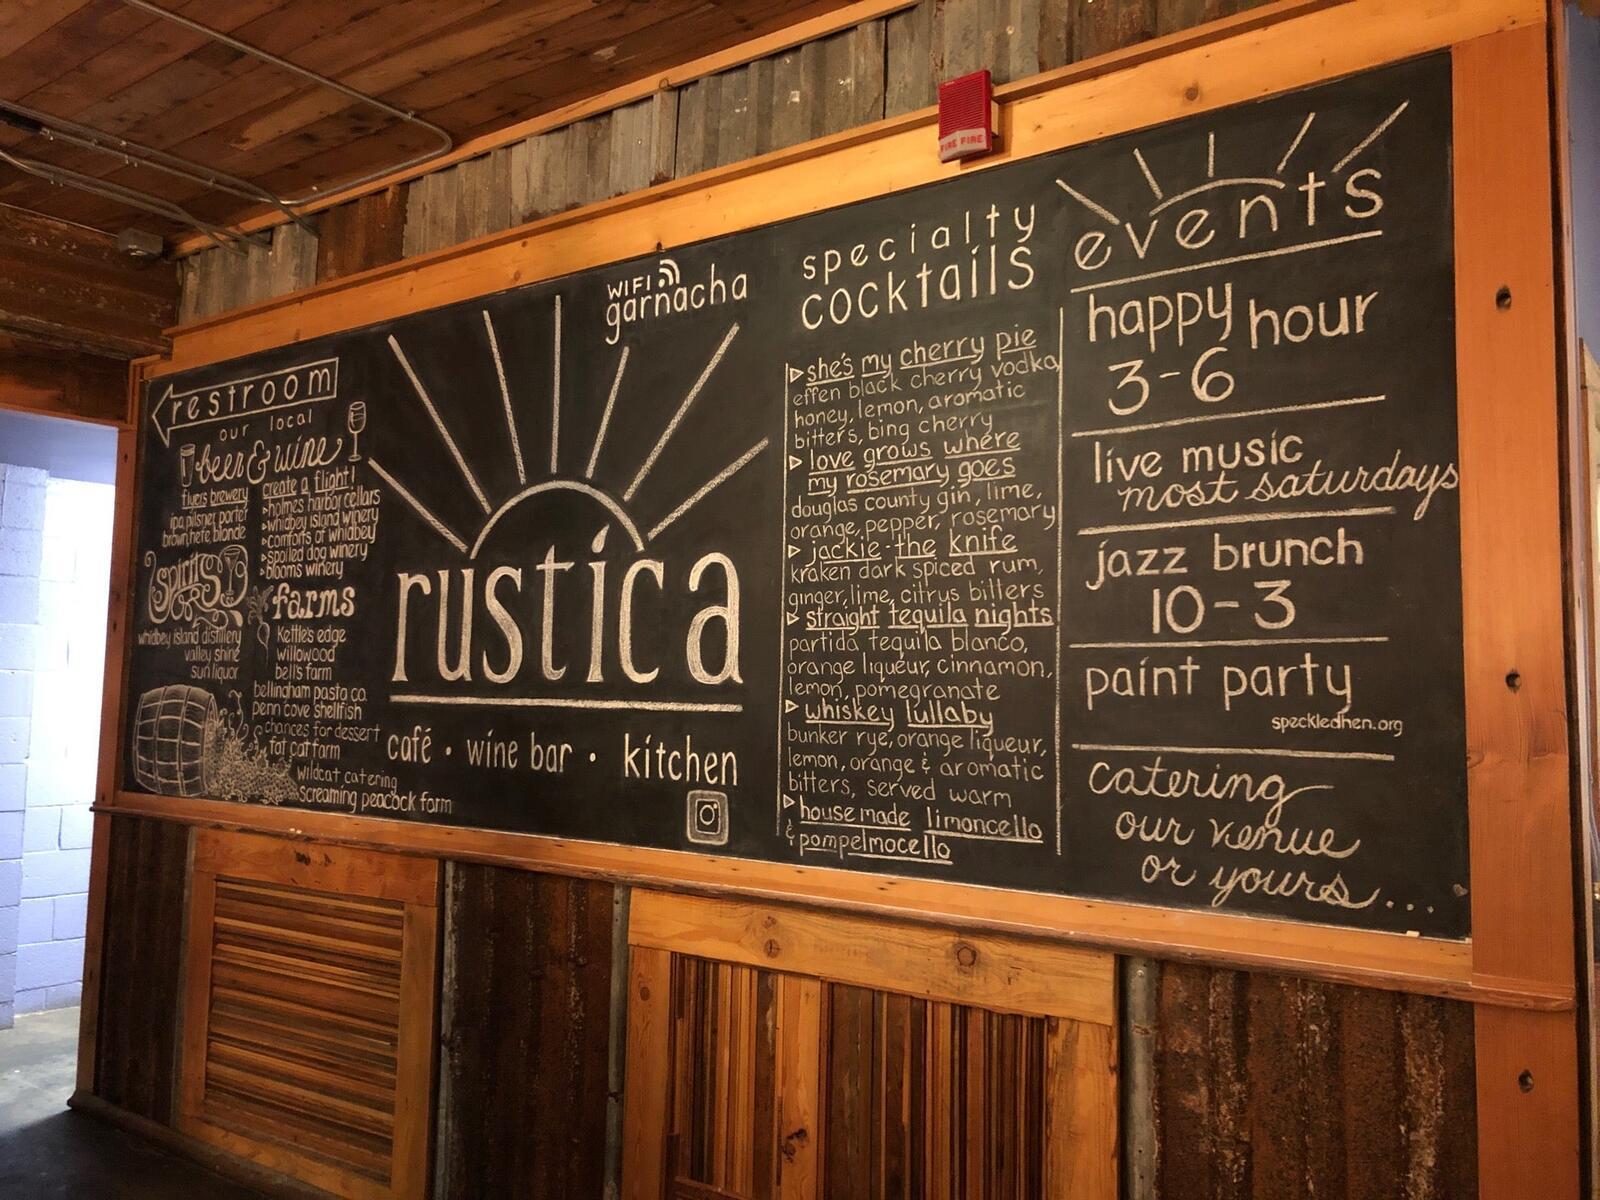 restroom
our local
beer & wine
flyers brewery
ipa pilsner porter
brown, hefe blonde
create a flight!
holmes harbor cellars
whidbey island winery
comforts of whidbey
spoiled dog winery
blooms winery
spirits
whidbey island distillery
valley shine
sun liquor
farms
Kettle's edge
willowood
bell's farm
bellingham pasta co.
penn cove shellfish
chances for dessert
fat cat farm
wildcat catering
screaming peacock farm
WIFI
garnacha
rustica
café · wine bar · kitchen
specialty
cocktails
she's my cherry pie
effen black cherry vodka,
honey, lemon, aromatic
bitters, bing cherry
love grows where
my rosemary goes
douglas county gin, lime,
orange, pepper, rosemary
jackie-the knife
kraken dark spiced rum,
ginger, lime, citrus bitters
straight tequila nights
partida tequila blanco,
orange liqueur, cinnamon,
lemon, pomegranate
whiskey lullaby
bunker rye, orange liqueur,
lemon, orange & aromatic
bitters, served warm
house made limoncello
& pompelmocello
events
happy hour
3-6
live music
most saturdays
jazz brunch
10-3
paint party
speckledhen.org
catering
our venue
or yours...
FIRE FIRE